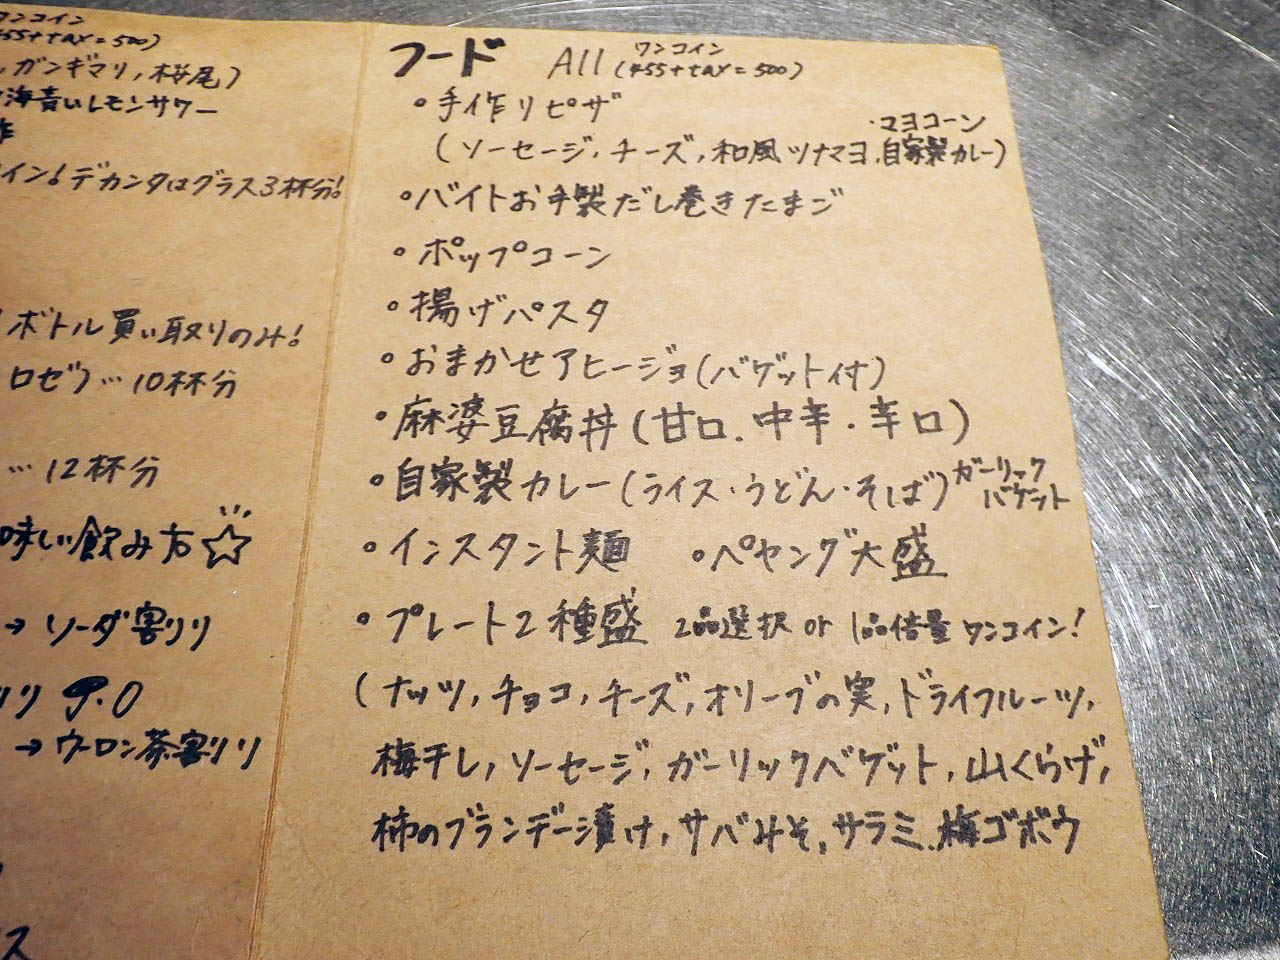 ワンコイン
455+tax=500)
, ガンギマリ, 桜尾)
海青いレモンサワー
作
イン! デカンタはグラス3杯分!
ボトル買い取りのみ!
ロゼ)…10杯分
…12杯分
味しい飲み方☆
→ソーダ割り
→ウーロン茶割り
ス
フード All ワンコイン
(455+tax=500)
・手作りピザ
・マヨコーン
(ソーセージ, チーズ, 和風ツナマヨ, 自家製カレー)
・バイトお手製だし巻きたまご
・ポップコーン
・揚げパスタ
・おまかせアヒージョ(バゲット付)
・麻婆豆腐丼(甘口. 中辛・辛口)
・自家製カレー(ライス・うどん・そば)ガーリック
バゲット
・インスタント麺 ・ペヤング大盛
・プレート2種盛 2品選択 or 1品倍量 ワンコイン!
(ナッツ, チョコ, チーズ, オリーブの実, ドライフルーツ,
梅干し, ソーセージ, ガーリックバゲット, 山くらげ,
柿のブランデー漬け, サバみそ, サラミ, 梅ゴボウ